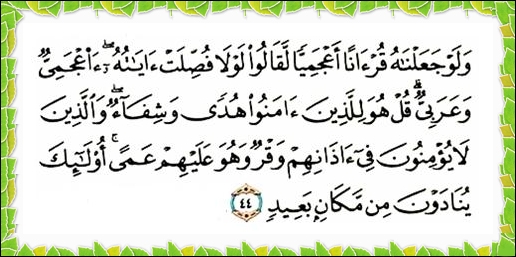 وَلَوْ جَعَلْنَٰهُ قُرْءَانًا أَعْجَمِيًّا لَّقَالُوا۟ لَوْلَا فُصِّلَتْ ءَايَٰتُهُۥٓ ۖ ءَا۬عْجَمِىٌّ
وَعَرَبِىٌّ ۗ قُلْ هُوَ لِلَّذِينَ ءَامَنُوا۟ هُدًى وَشِفَآءٌ ۖ وَٱلَّذِينَ
لَا يُؤْمِنُونَ فِىٓ ءَاذَانِهِمْ وَقْرٌ وَهُوَ عَلَيْهِمْ عَمًى ۚ أُو۟لَٰٓئِكَ
يُنَادَوْنَ مِن مَّكَانٍۭ بَعِيدٍ ٤٤